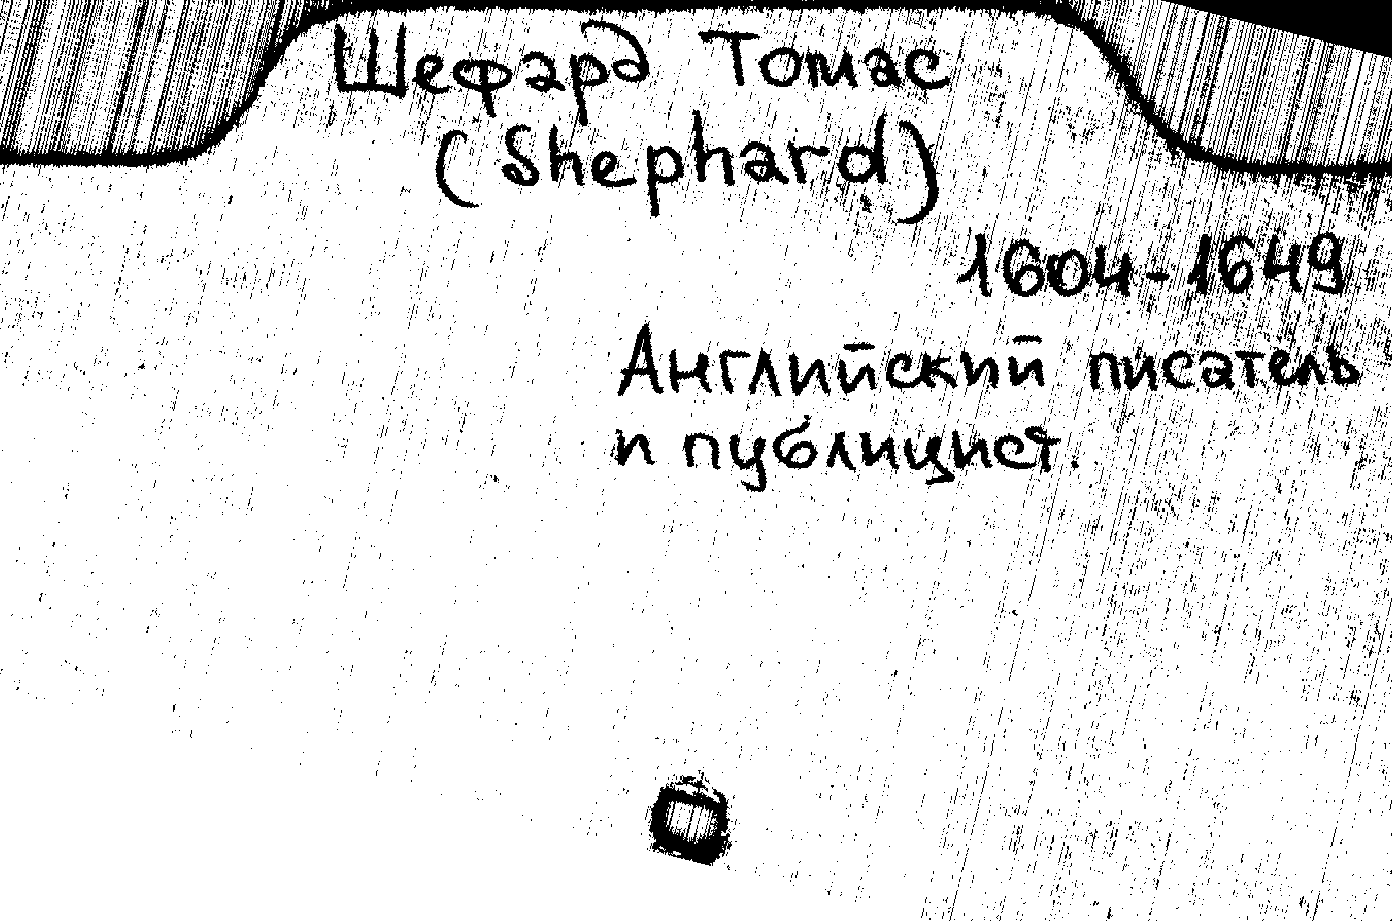 Шефард Томас
(Shephard)
1604-1649
Английский писатель
и публицист.